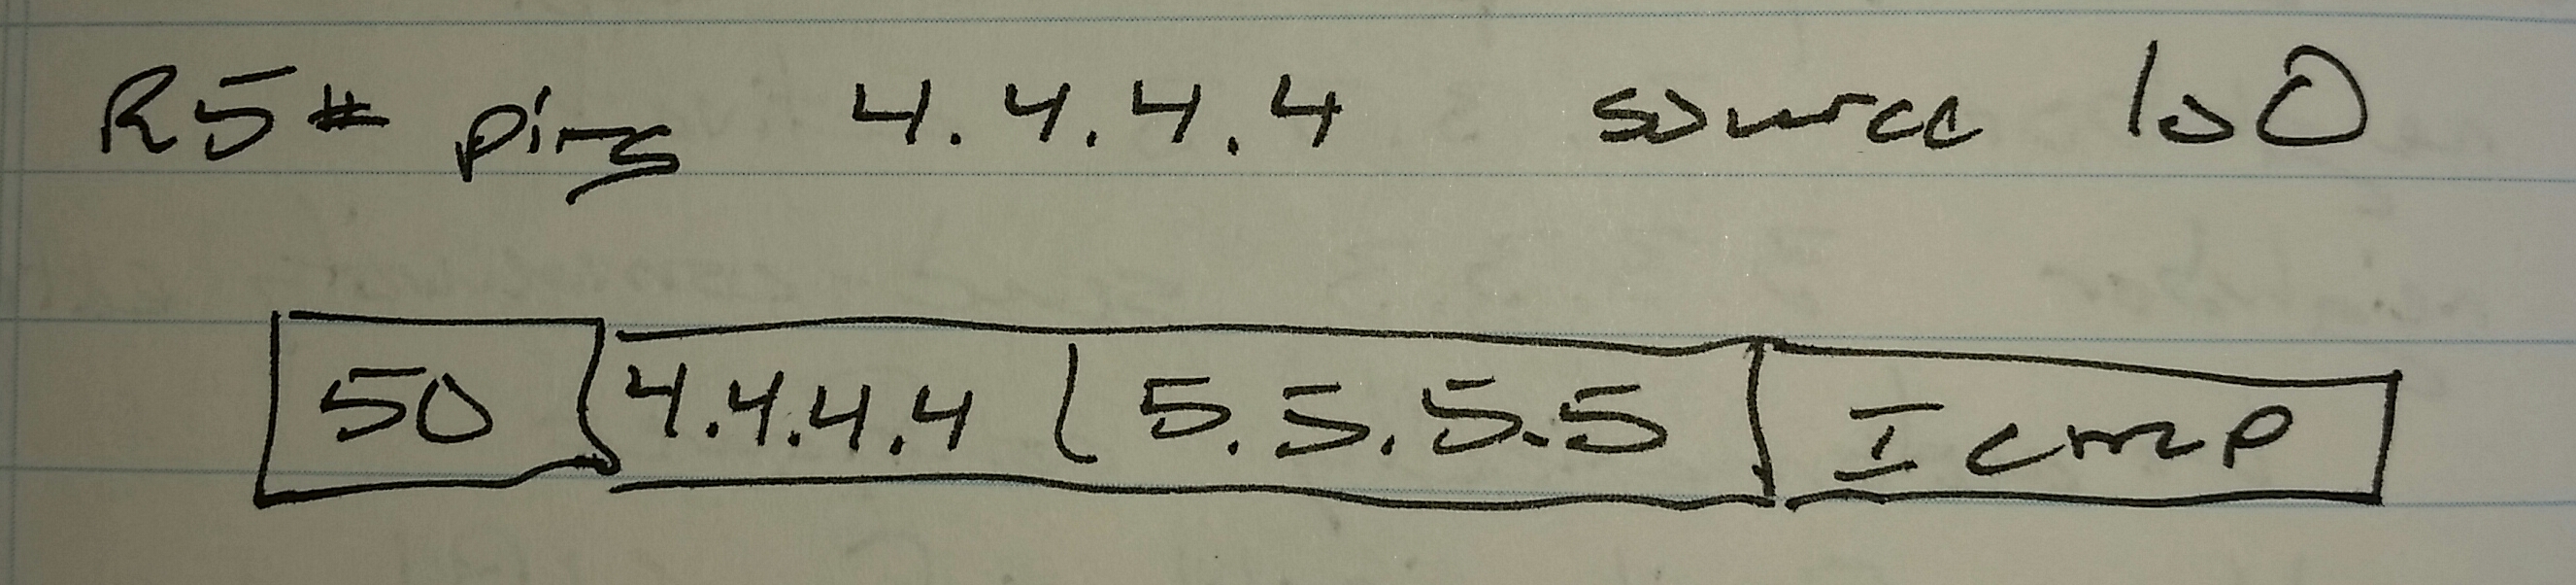 R5# ping 4.4.4.4 source lo0
50 4.4.4.4 5.5.5.5 ICMP